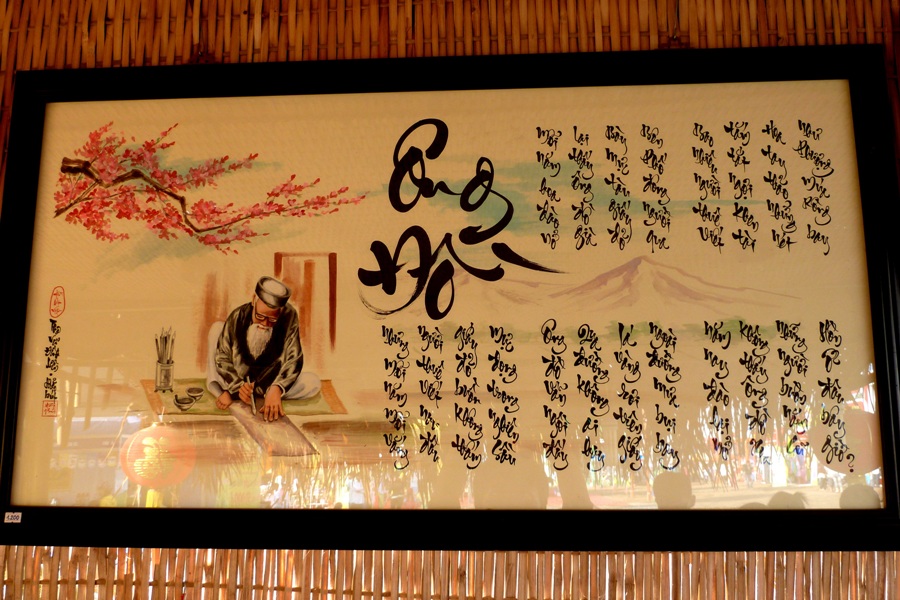 Ông Đồ
Mỗi năm hoa đào nở
Lại thấy ông đồ già
Bày mực tàu giấy đỏ
Bên phố đông người qua
Bao nhiêu người thuê viết
Tấm tắt ngợi khen tài
Hoa tay thảo những nét
Như phượng múa rồng bay
Nhưng mỗi năm mỗi vắng
Người thuê viết nay đâu
Giấy đỏ buồn không thắm
Mực đọng trong nghiên sầu
Ông đồ vẫn ngồi đấy
Qua đường không ai hay
Lá vàng rơi trên giấy
Ngoài đường mưa bụi bay
Năm nay đào lại nở
Không thấy ông đồ xưa
Những người muôn năm cũ
Hồn ở đâu bây giờ?